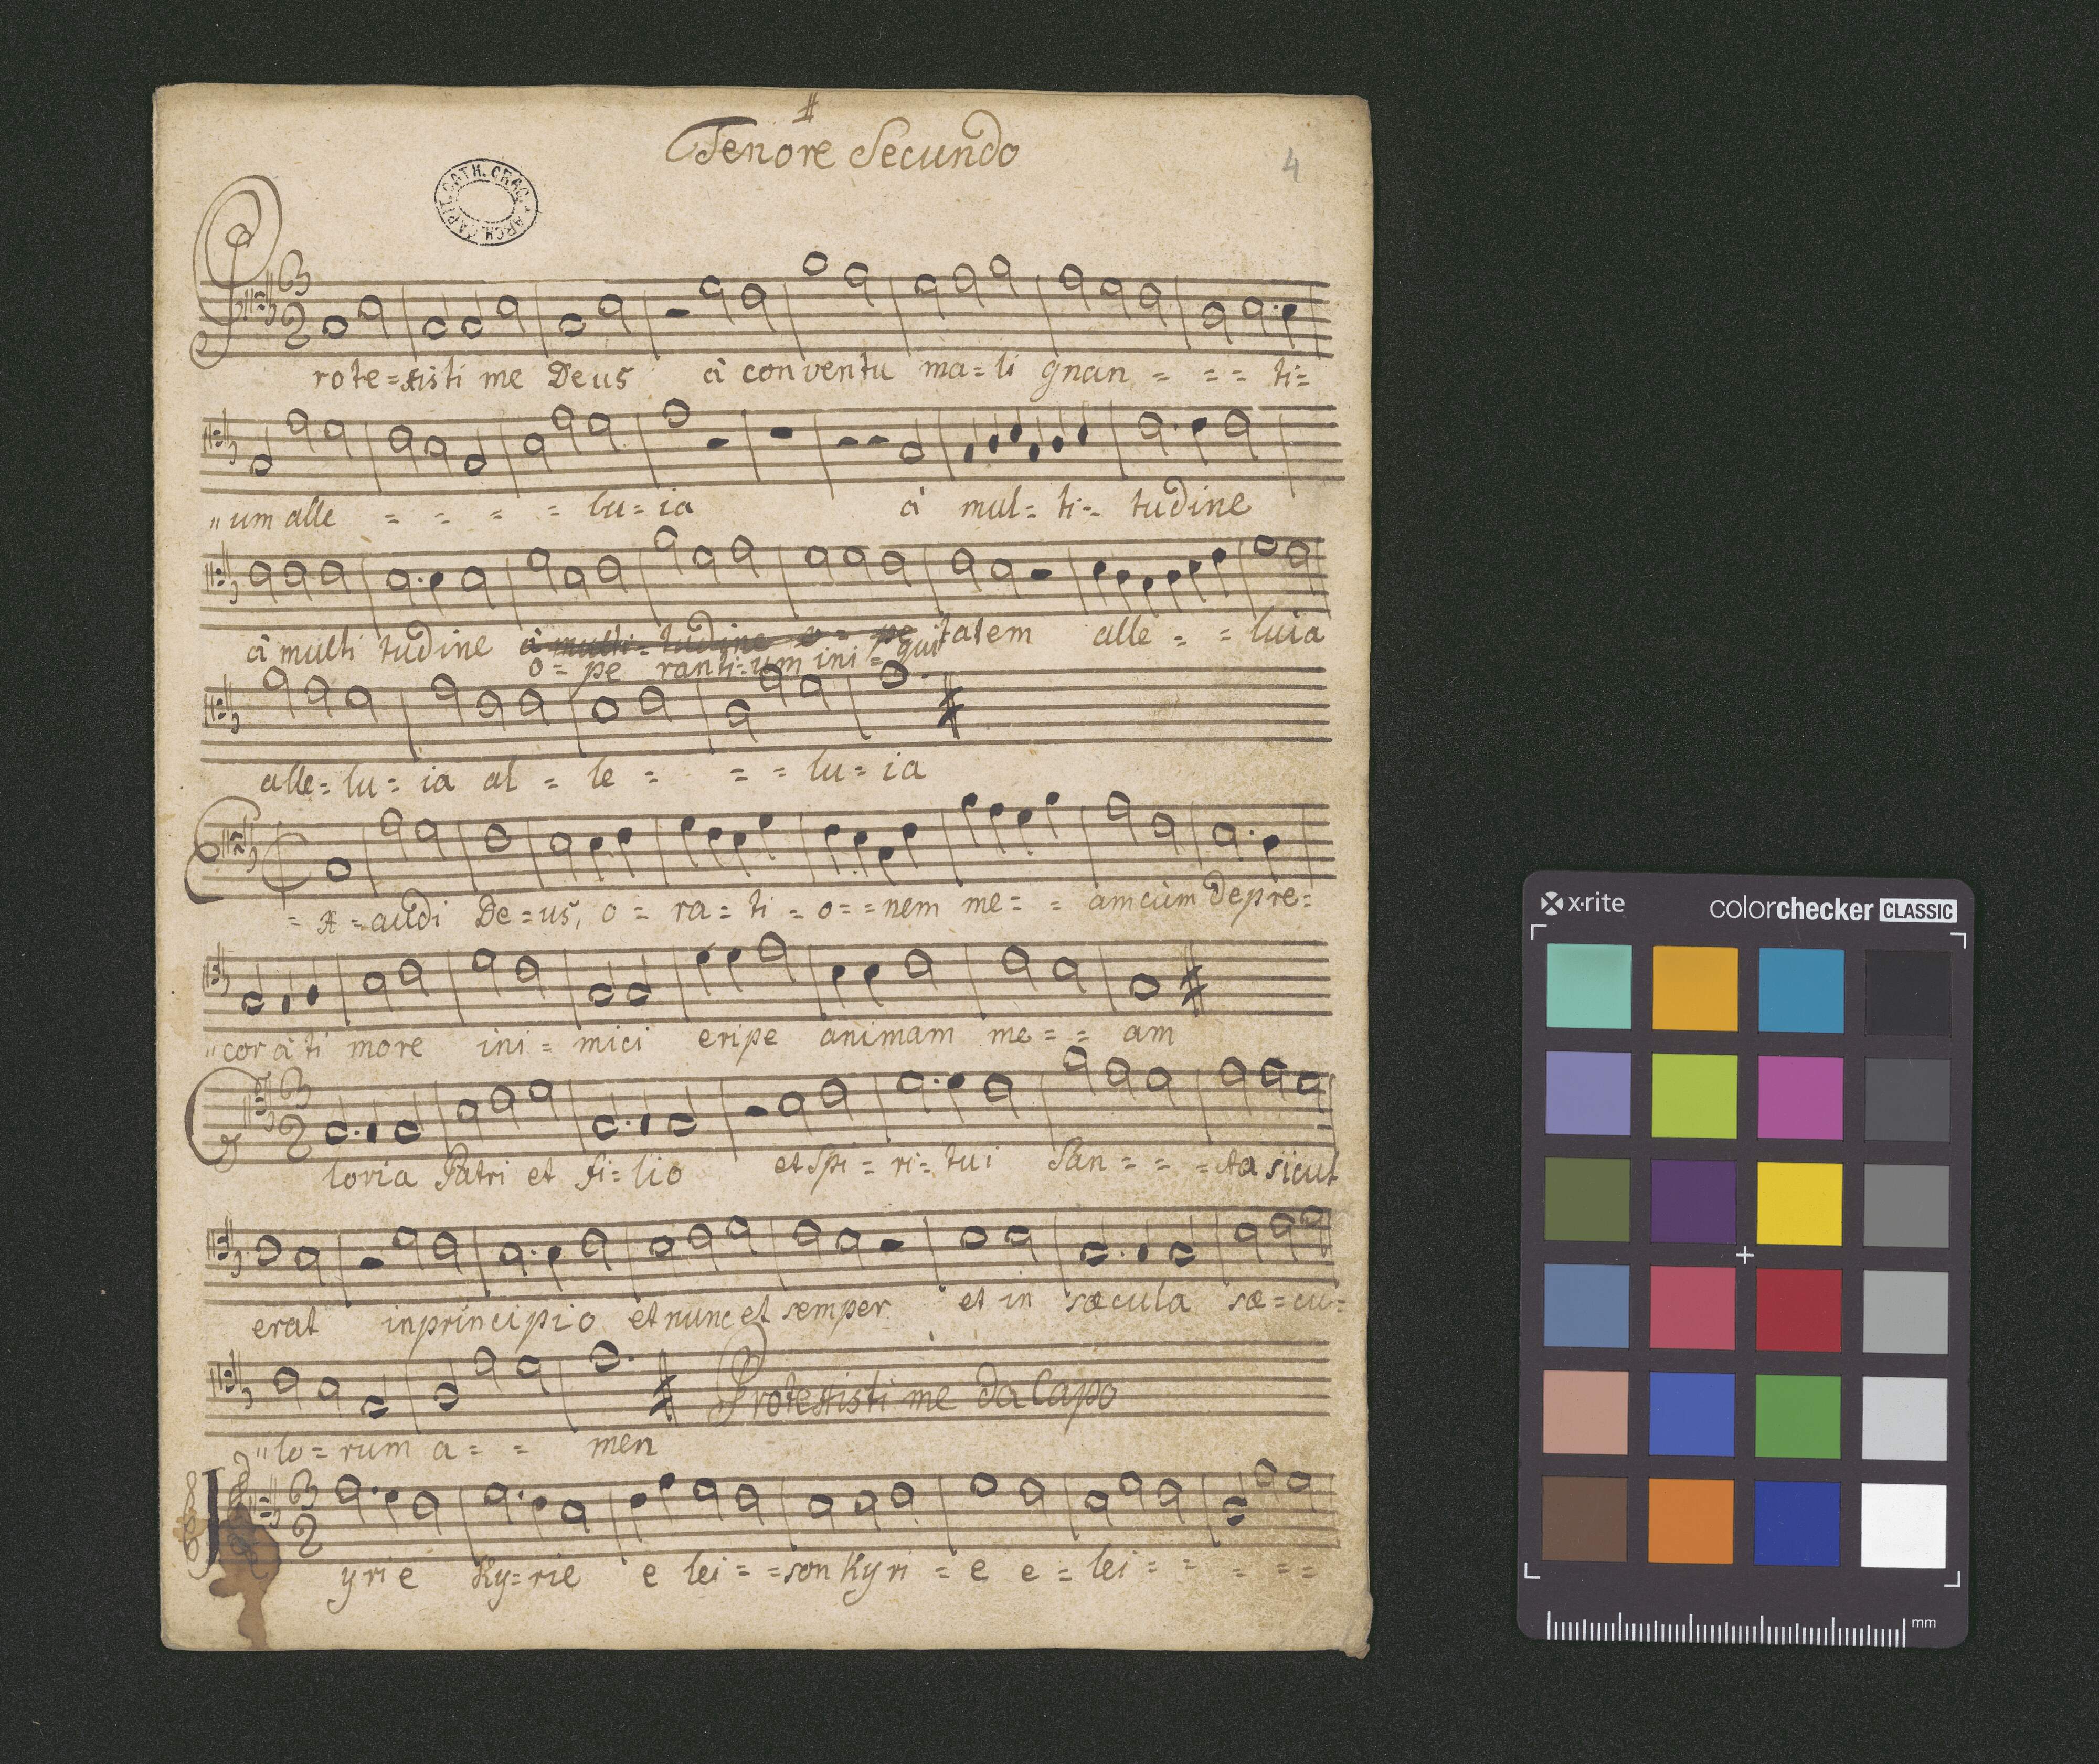 Tenore Secundo
4
ARCH. CAPIT. CATH. CRAC.
6 2
Protectisti me Deus à conventu ma=li gnan = = = ti=
"um alle = = = = lu=ia à mul= ti= tudine
à multi tudine à multi= tudine o= pe tatem alle = = luia
o= pe ranti=um ini= qui
alle=lu= ia al = le = = = lu= ia
Ex=audi De=us, o = ra= ti = o= =nem me= = am cùm depre=
"cor à ti more ini= mici eripe animam me= = am
6 2
Gloria Patri et fi=lio et Spi= ri= tui San= = =cto sicut
erat in principio et nunc et semper et in sæcula sæ=cu=
Protectisti me da Capo
"lo= rum a= = men
6 2
Kyrie Ky=rie e lei= =son Kyri = e e = lei = = = = =
x·rite
colorchecker CLASSIC
mm